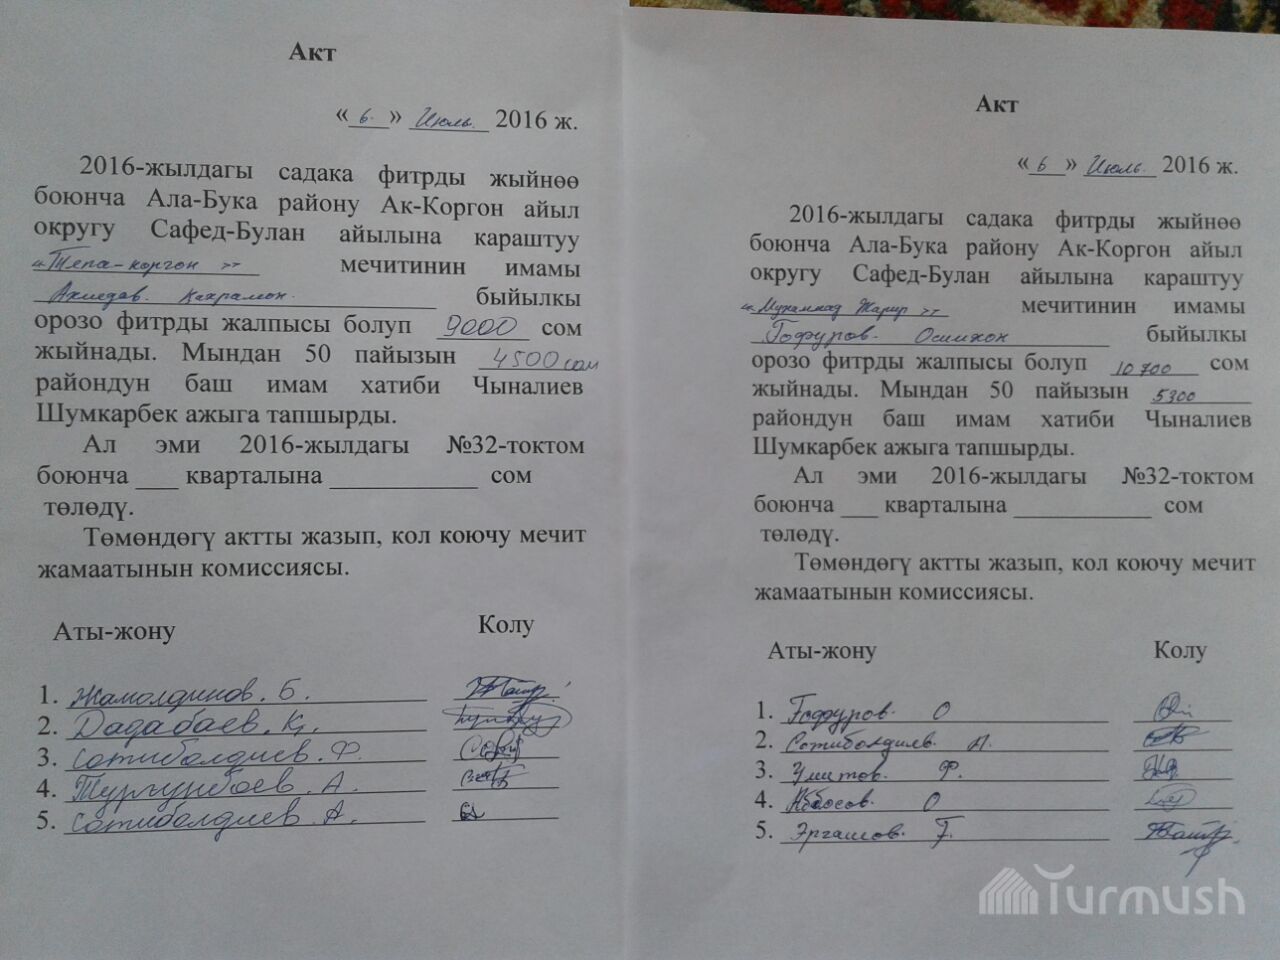 Акт
«6.» Июль. 2016 ж.
2016-жылдагы садака фитрды жыйнөө
боюнча Ала-Бука району Ак-Коргон айыл
округу Сафед-Булан айылына караштуу
«Тепа-коргон» мечитинин имамы
Ахмедов. Кахрамон. быйылкы
орозо фитрды жалпысы болуп 9000 сом
жыйнады. Мындан 50 пайызын 4500 сом
райондун баш имам хатиби Чыналиев
Шумкарбек ажыга тапшырды.
Ал эми 2016-жылдагы №32-токтом
боюнча ___ кварталына ___________ сом
төлөдү.
Төмөндөгү актты жазып, кол коючу мечит
жамаатынын комиссиясы.
Аты-жону Колу
1. Жамолдинов. Б.
2. Дадабаев. К.
3. Сотиболдиев. Ф.
4. Тургунбаев. А.
5. Сотиболдиев. А.
Акт
«6» Июль. 2016 ж.
2016-жылдагы садака фитрды жыйнөө
боюнча Ала-Бука району Ак-Коргон айыл
округу Сафед-Булан айылына караштуу
«Мухаммад Жарир» мечитинин имамы
Гофуров. Осимхон быйылкы
орозо фитрды жалпысы болуп 10 700 сом
жыйнады. Мындан 50 пайызын 5300
райондун баш имам хатиби Чыналиев
Шумкарбек ажыга тапшырды.
Ал эми 2016-жылдагы №32-токтом
боюнча ___ кварталына ___________ сом
төлөдү.
Төмөндөгү актты жазып, кол коючу мечит
жамаатынын комиссиясы.
Аты-жону Колу
1. Гофуров. О
2. Сотиболдиев. А.
3. Умитов. Ф.
4. Аббосов. О
5. Эргашов. Г.
Turmush